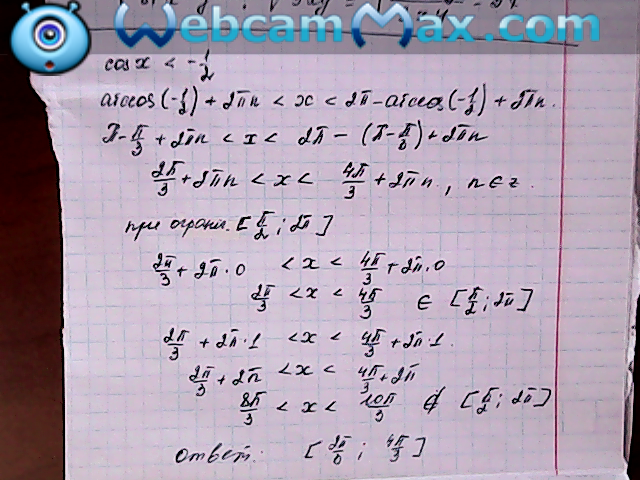 WebcamMax.com
cos x < -1/2
arccos(-1/2) + 2πn < x < 2π - arccos(-1/2) + 2πn.
π - π/3 + 2πn < x < 2π - (π - π/6) + 2πn
2π/3 + 2πn < x < 4π/3 + 2πn, n ∈ z.
при огранич. [π/2; 2π]
2π/3 + 2π·0 < x < 4π/3 + 2π·0
2π/3 < x < 4π/3 ∈ [π/2; 2π]
2π/3 + 2π·1 < x < 4π/3 + 2π·1.
2π/3 + 2π < x < 4π/3 + 2π
8π/3 < x < 10π/3 ∉ [π/2; 2π]
ответ: [2π/6; 4π/3]